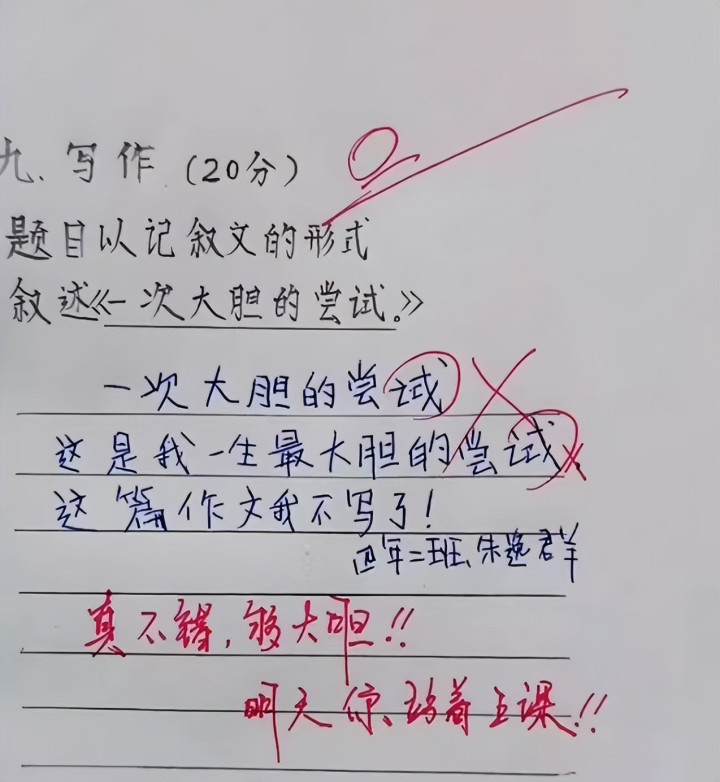 九、写作（20分）
0
题目以记叙文的形式
叙述《一次大胆的尝试。》
一次大胆的尝试
这是我一生最大胆的尝试、
这篇作文我不写了！
四年二班、朱逸群
真不错，够大胆！！
明天你站着上课！！